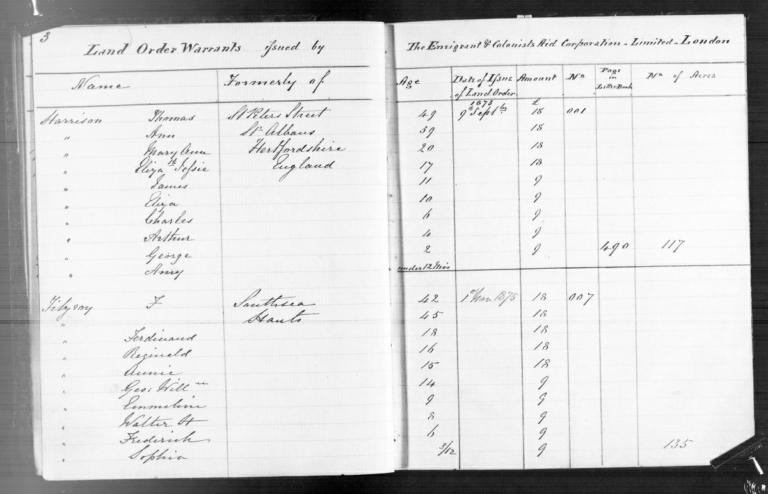 3
Land Order Warrants issued by The Emigrant & Colonists Aid Corporation - Limited - London
Name Formerly of Age Date of Issue of Land Order Amount No Page in Letter Book No of Acres
1873 £
Harrison Thomas St Peters Street 49 9th Septr 18 001
" Ann St Albans 39 18
" Mary Ann Hertfordshire 20 18
" Elizth Jessie England 17 18
" James 11 9
" Eliza 10 9
" Charles 6 9
" Arthur 4 9
" George 2 9 490 117
" Amy under 12 Mos
F Southsea 42 1875 18 007
" Hants 45 18
" Ferdinand 18 18
" Reginald 16 18
" Annie 15 18
" Geo: Willm 14 9
" Emmeline 9 9
" Walter H 8 9
" Frederick 6 9
" Sophia 3/12 9 135